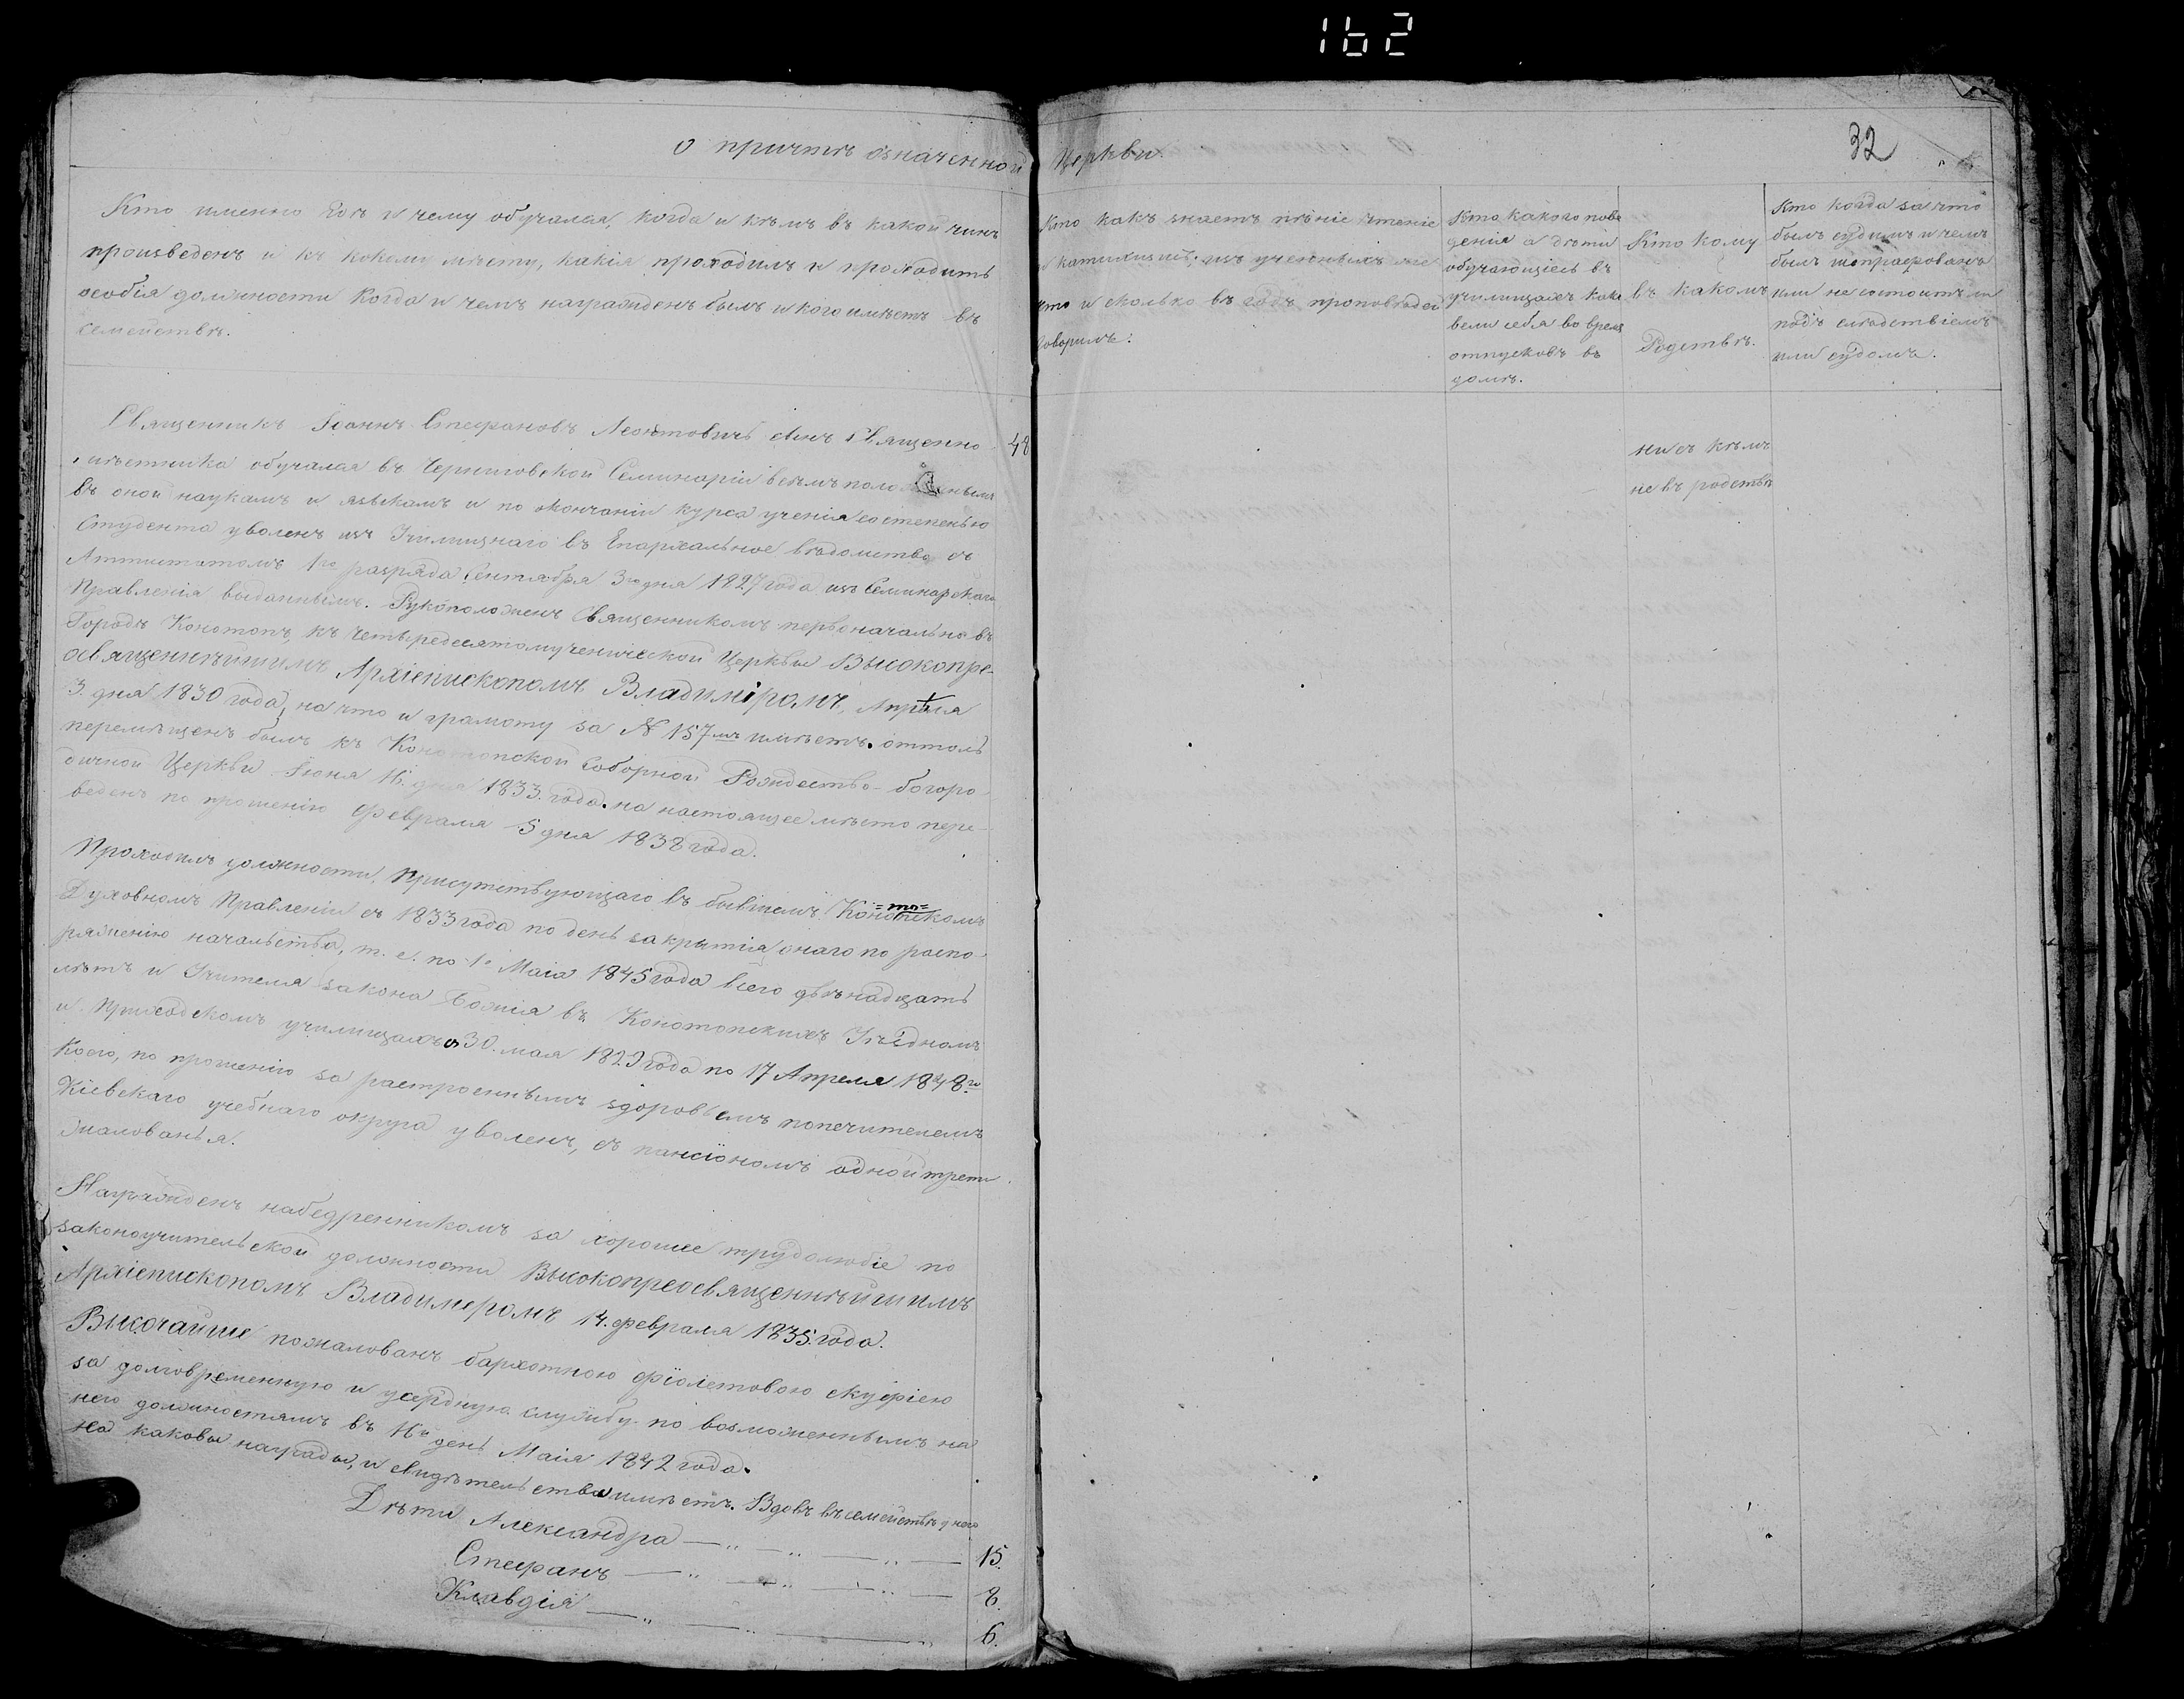 162
32
О причтѣ означенной Церкви.
Кто именно гдѣ и чему обучался, когда и кѣмъ въ какой чинъ
произведенъ и къ какому мѣсту, какія проходилъ и проходитъ
особыя должности когда и чемъ награжденъ былъ и кого имѣетъ въ
семействѣ.
Кто какъ знаетъ пѣніе чтеніе
и катихизисъ; изъ ученыхъ же
кто и сколько въ годъ проповѣдей
говорилъ:
Кто какого пове
денія а дѣти
обучающіесь въ
училищахъ како
вели себя во время
отпусковъ въ
домъ.
Кто кому
въ какомъ
Родствѣ.
Кто когда за что
былъ судимъ и чемъ
былъ штрафованъ
или не состоитъ ли
подъ слѣдствіемъ
или судомъ.
Священникъ Іоаннъ Стефановъ Леонтовичъ сынъ Священно 48
обучался въ Черниговской Семинаріи всѣмъ положеннымъ
въ оной наукамъ и языкамъ и по окончаніи курса ученія со степенью
Студента уволенъ изъ Училищнаго въ Епархальное вѣдомство съ
Аттистатомъ 1го разряда Сентября 3го дня 1827 года изъ Семинарскаго
Правленія выданнымъ. Рукоположенъ Священникомъ первоначально въ
Городѣ Конотопъ, къ Четыредесятомученической Церкви Высокопре-
освященнѣйшимъ Архіепископомъ Владиміромъ, Апрѣля
3 дня 1830 года, на что и грамоту за № 157мъ имѣетъ. оттоль
перемѣщенъ былъ къ Конотопской Соборной Рождество-богоро
дичной Церкви Іюня 16 дня 1833. года. на настоящее мѣсто пере-
веденъ по прошенію Февраля 5 дня 1838 года.
Проходилъ должности, Присутствующаго въ бывшемъ Коно=то=пскомъ
Духовномъ Правленіи съ 1833 года по день закрытія онаго по распо-
ряженію начальства, т. е. по 1е Маія 1845 года всего двѣнадцать
лѣтъ и Учителя закона Божія въ Конотопскихъ Уѣздномъ
и Приходскомъ училищахъ съ 30. мая 1829 года по 17 Апреля 1848го
Коего, по прошенію за растроеннымъ здоровьемъ попечителемъ
Кіевскаго учебнаго округа уволенъ, съ пансіономъ одной трети
жалованья.
Награжденъ набедренникомъ за хорошее трудолюбіе по
законоучительской должности Высокопреосвященнѣйшимъ
Архіепископомъ Владимеромъ 14. февраля 1835. года.
Высочайше пожалованъ бархотною фіолетовою скуфіею
за долговременную и усердную службу по возложеннымъ на
него должностямъ въ 16й день Маія 1842 года.
На каковы награды, и свидѣтельства имѣетъ. Вдовъ въ семействѣ у него
Дѣти Александра 15.
Стефанъ 8.
Клавдія 6.
ни съ кѣмъ
не въ родствѣ